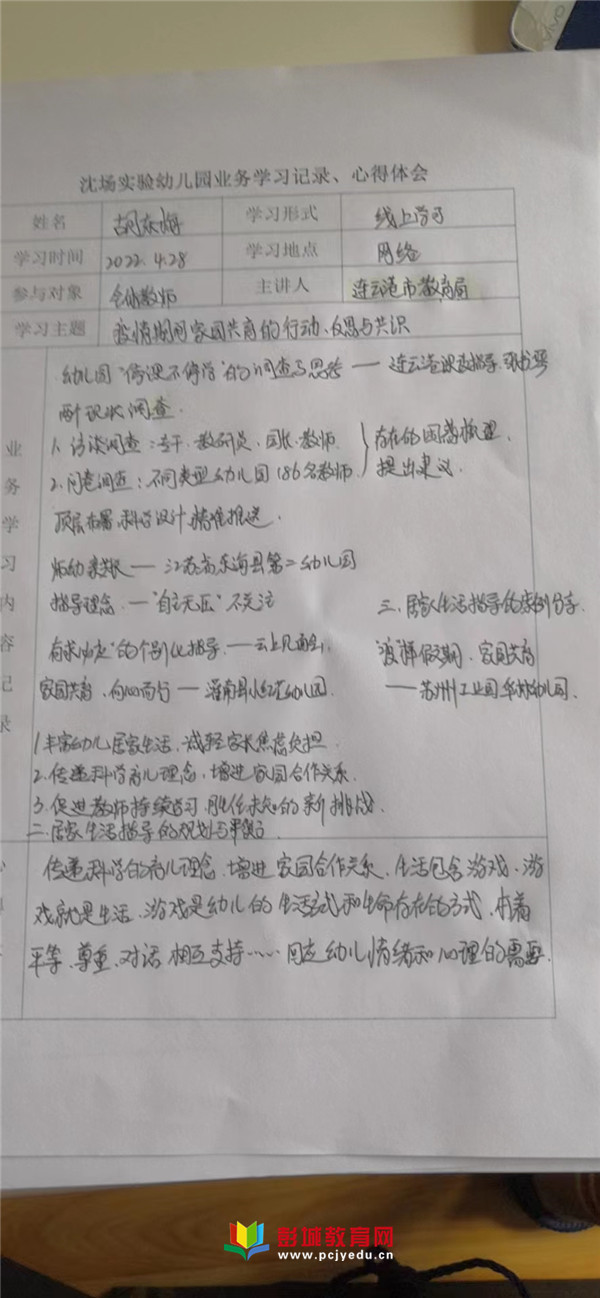 vivo
沈场实验幼儿园业务学习记录、心得体会
姓名 胡东梅 学习形式 线上学习
学习时间 2022.4.28 学习地点 网络
参与对象 全体教师 主讲人 连云港市教育局
学习主题 疫情期间家园共育的行动、反思与共识
业务学习内容记录
幼儿园"停课不停学"的调查与思考——连云港
两种现状调查
1、访谈调查:专干、教研员、园长、教师. 存在的困
2.问卷调查:不同类型幼儿园186名教师 提出建议.
顶层布署,科学设计,精准推送.
——江苏省东海县第二幼儿园
指导理念.——"自主无压"不 三、居家生活指导的案例分享
有求必应"的个别化指导.——云上见面会 家园共育
家园共育、向心而行——灌南县小红花幼儿园. ——苏州工业园 幼儿园.
1丰富幼儿居家生活,减轻家长焦虑负担.
2.传递科学育儿理念,增进家园合作关系.
3.促进教师持续学习,胜任未知的新挑战
二、居家生活指导的规划与
传递科学的育儿理念、增进家园合作关系、生活包含游戏、游
戏就是生活、游戏是幼儿的生活方式和生命存在的方式,本着
平等、尊重、对话 相互支持…… 幼儿情绪和心理的需要.
彭城教育网
www.pcjyedu.cn